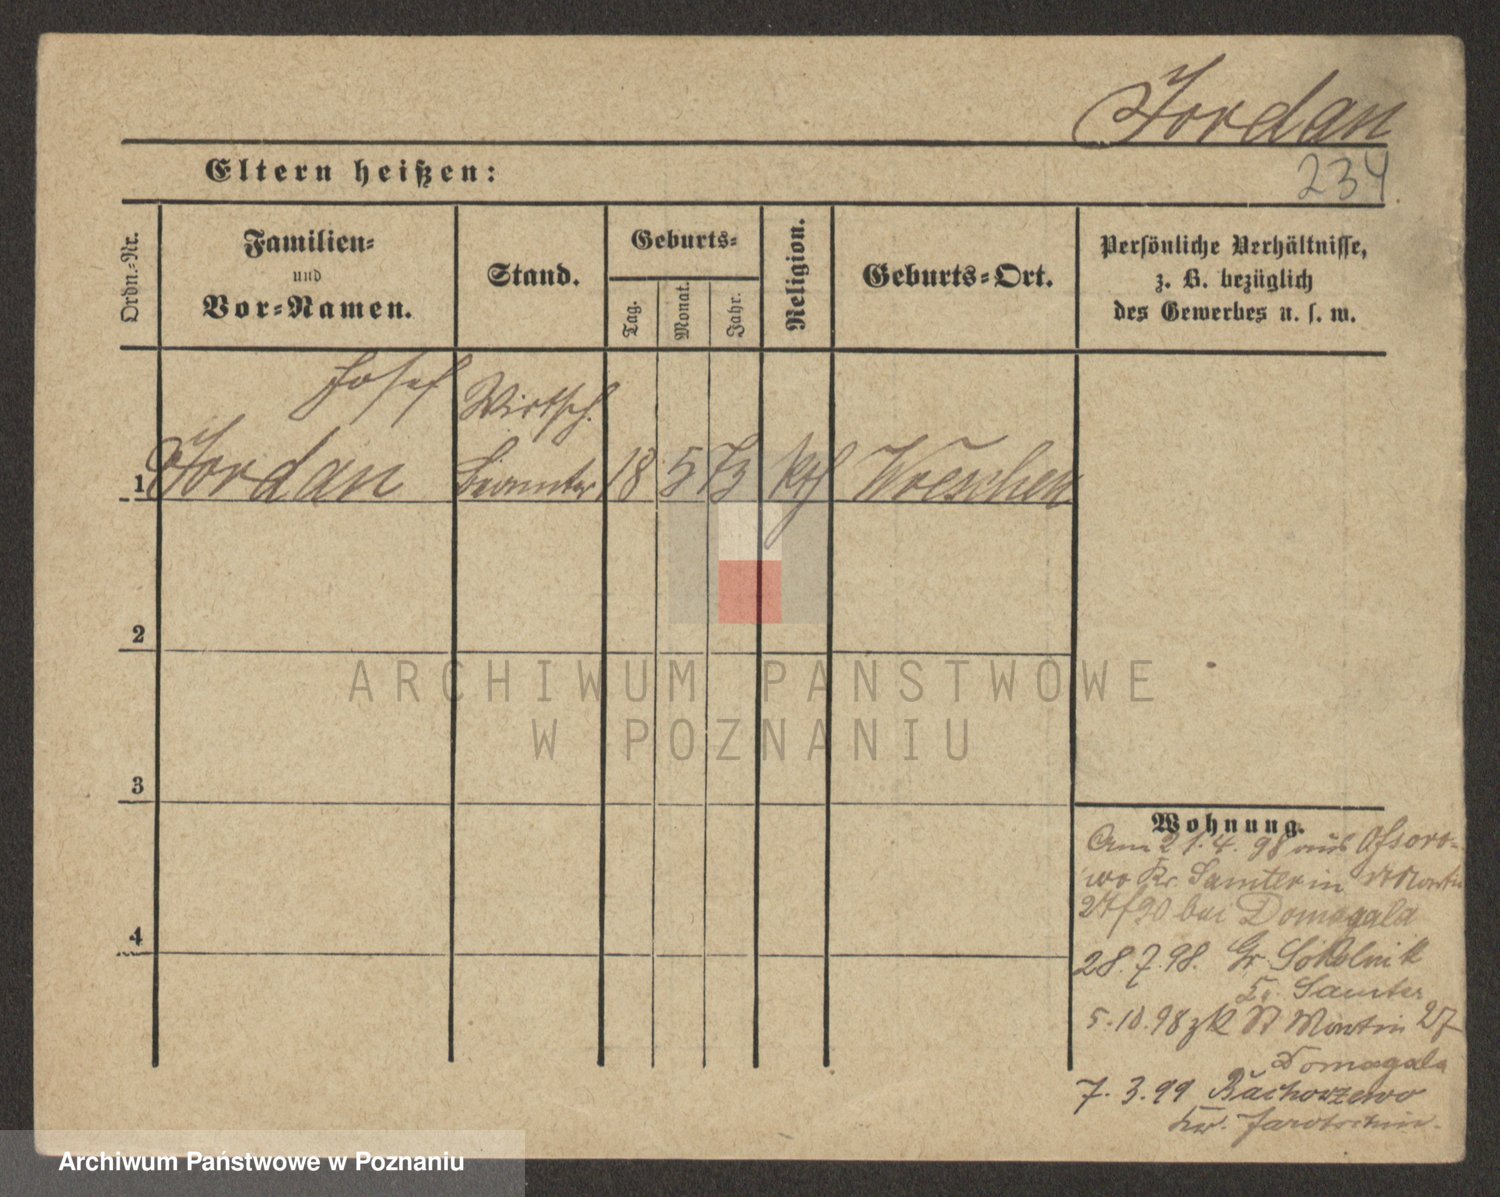 Jordan
234
Eltern heißen:
Ordn.-Nr.
Familien-
und
Vor-Namen.
Stand.
Geburts-
Tag.
Monat.
Jahr.
Religion.
Geburts-Ort.
Persönliche Verhältnisse,
z. B. bezüglich
des Gewerbes u. s. w.
Josef
Jordan
Wirtsch.
Beamter
18
5
73
kth
Wreschen
1
2
3
4
Wohnung.
Am 21.4.98 aus
wo Kr. Samter in St Martin
bei Domagala
28.7.98. Gr. Sokolnik
Kr. Samter
5.10.98 zk St Martin 27
Domagala
7.3.99 Bachorzewo
Kr. Jarotschin.
ARCHIWUM PAŃSTWOWE
W POZNANIU
Archiwum Państwowe w Poznaniu